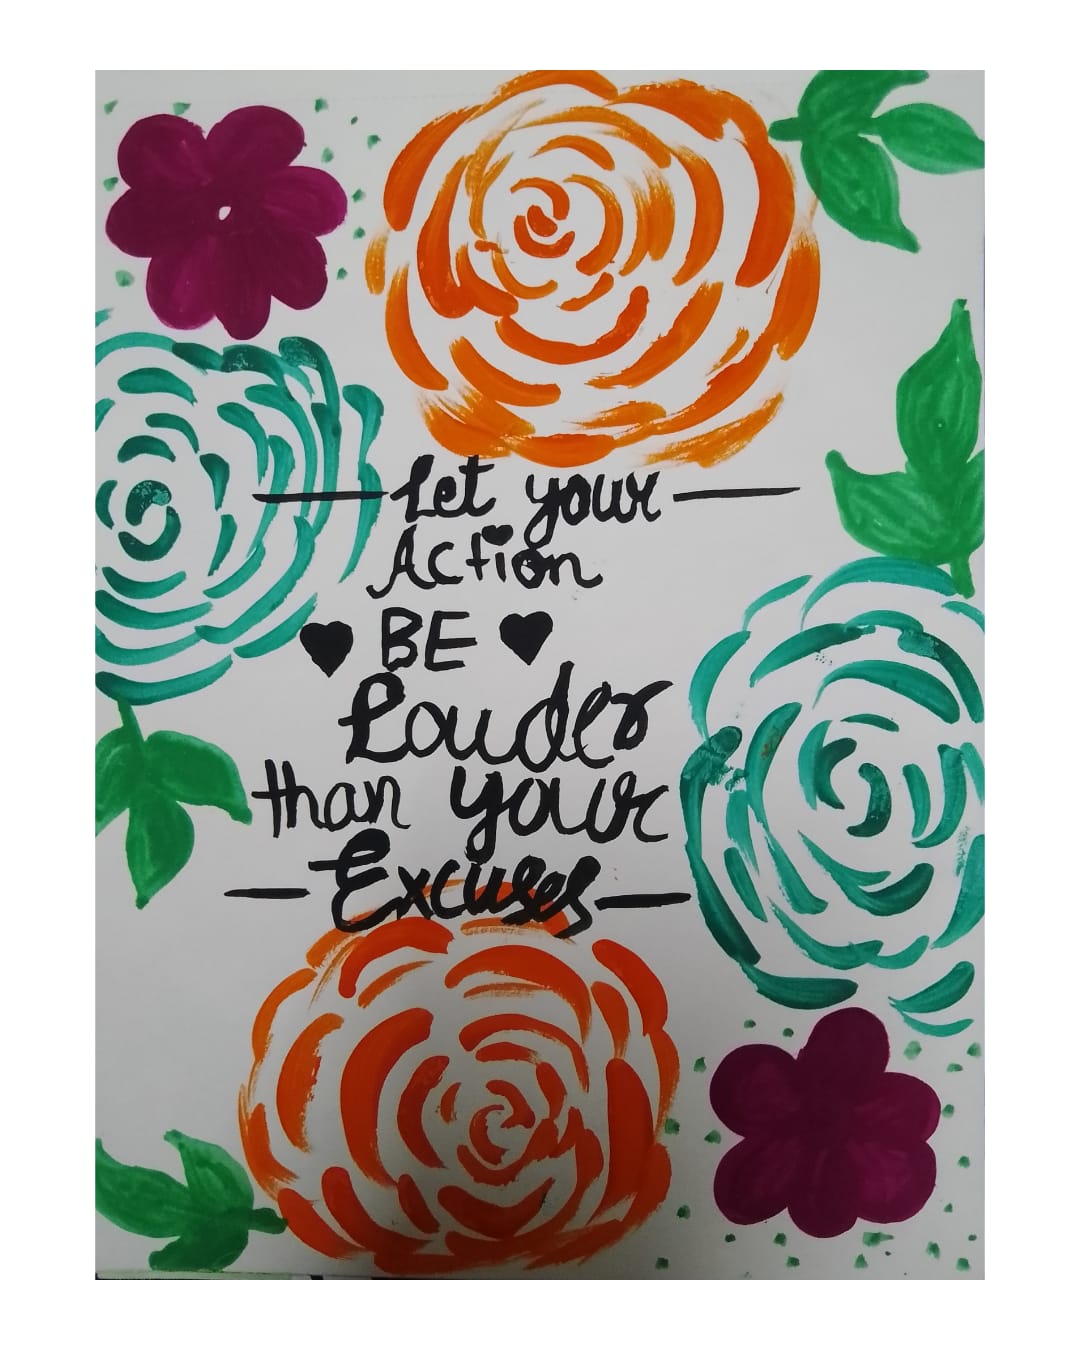 Let your
Action
BE
Louder
than your
Excuses